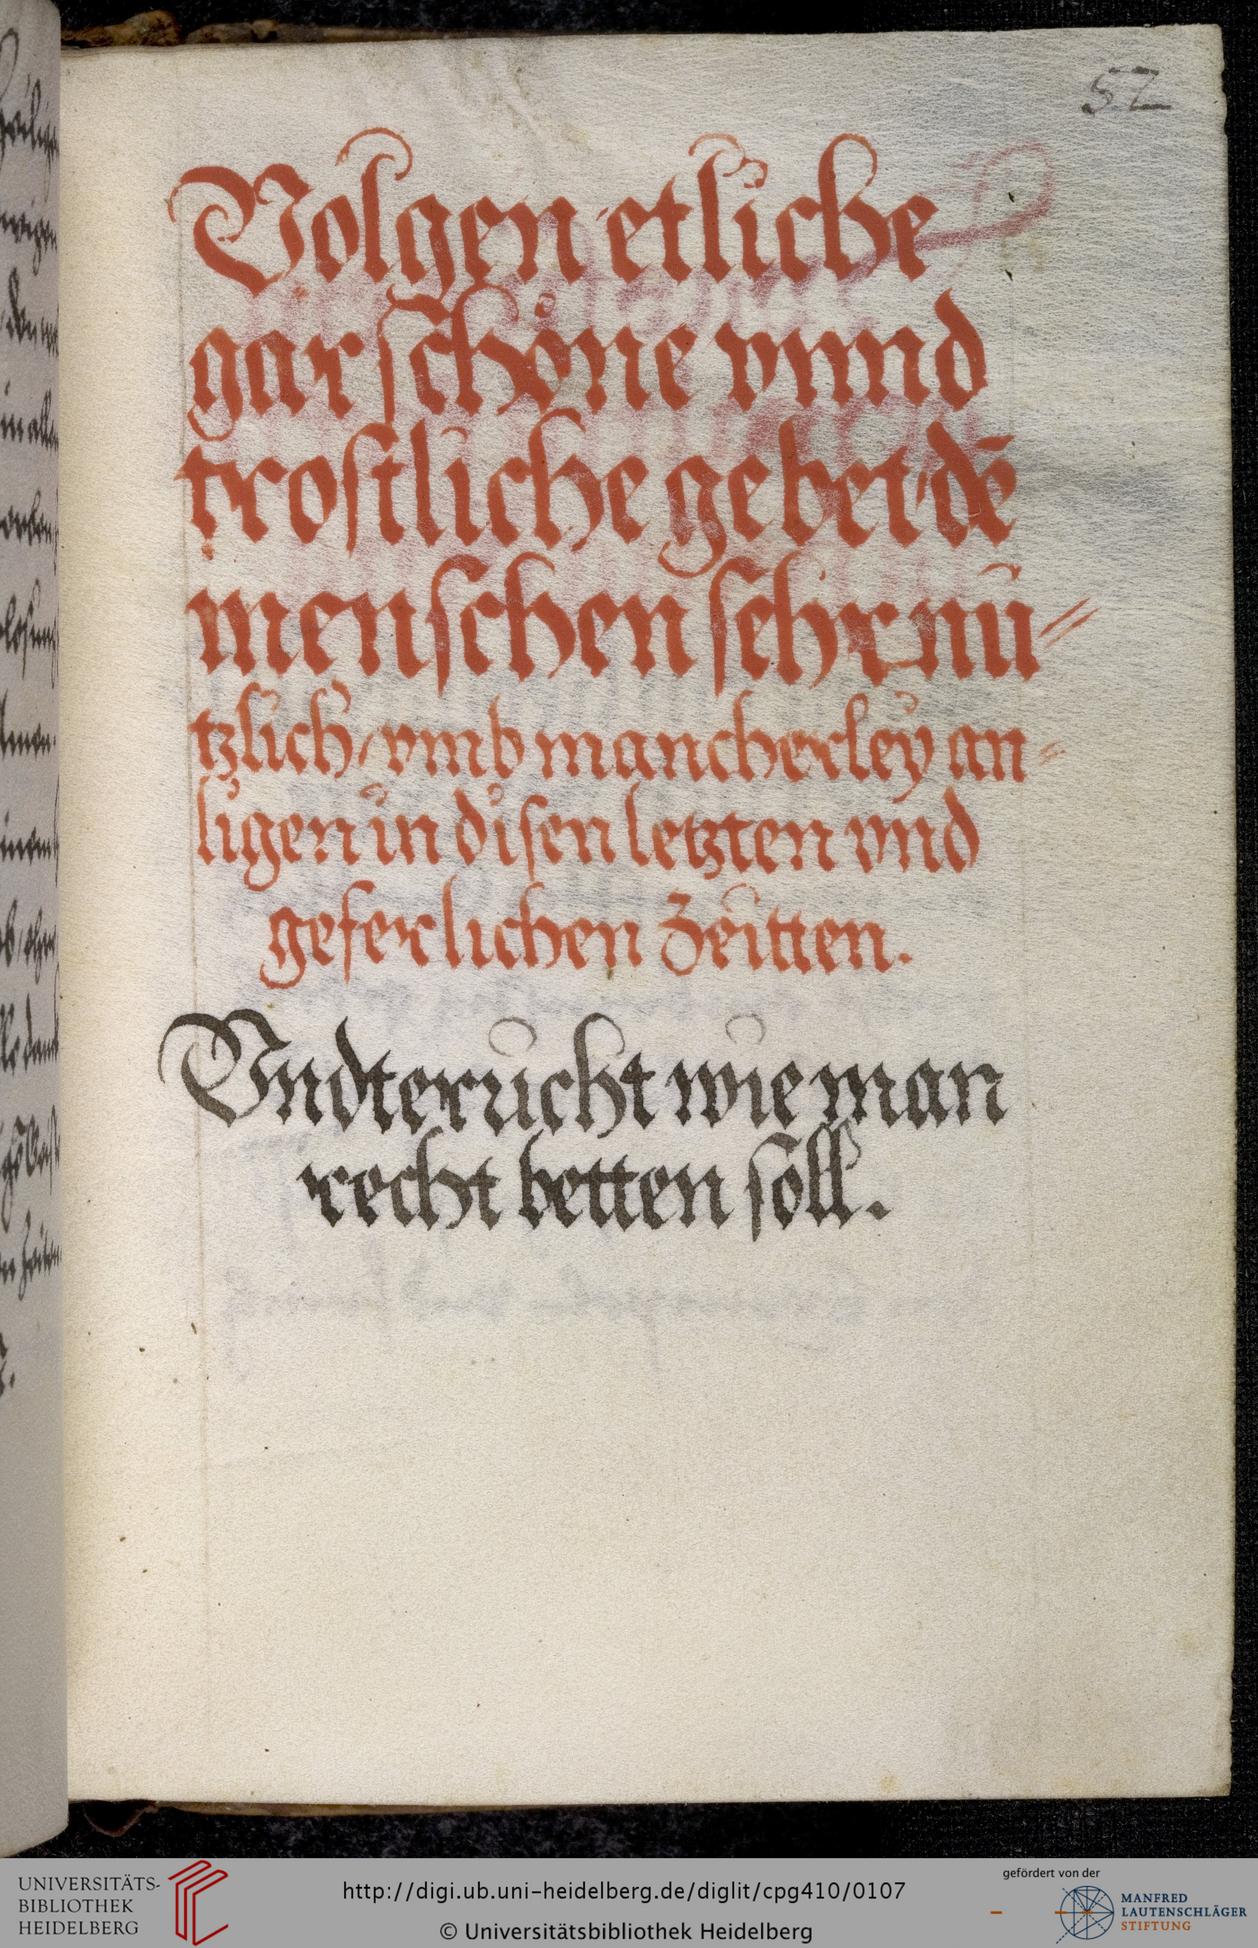 52
Volgen etliche
gar schöne vnnd
trostliche gebet, dē
menschen sehr nu=
tzlich, vmb mancherley an=
ligen in disen letzten vnd
geferlichen Zeitten.
Vndterricht wie man
recht betten soll.
UNIVERSITÄTS-
BIBLIOTHEK
HEIDELBERG
http://digi.ub.uni-heidelberg.de/diglit/cpg410/0107
© Universitätsbibliothek Heidelberg
gefördert von der
MANFRED
LAUTENSCHLÄGER
STIFTUNG